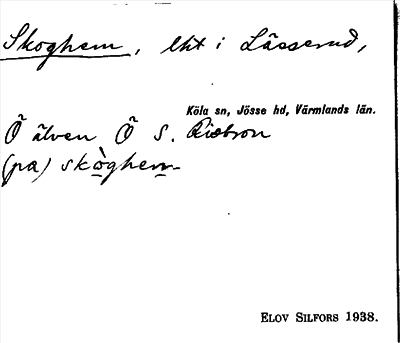 Skoghem, lht i Lässerud,
Köla sn, Jösse hd, Värmlands län.
Ö älven Ö S.
(pa) skòghem
ELOV SILFORS 1938.